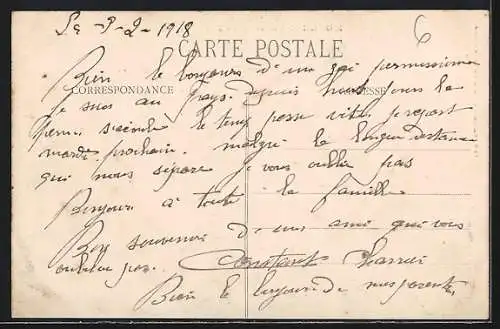 Le 9-2-1918
6
CARTE POSTALE
CORRESPONDANCE
Bien le bonjours d'un gai permissionn
je suis au pays. depuis huit jours la
perm. s'ecoule le temp passe vite je repart
mardi prochain. malgré la longue distance
qui nous sépare je vous oublie pas
Bonjour à toute la famille
Bon souvenir d'un ami qui vous
oublie pas. Constant
Bien le bonjour de mes parents